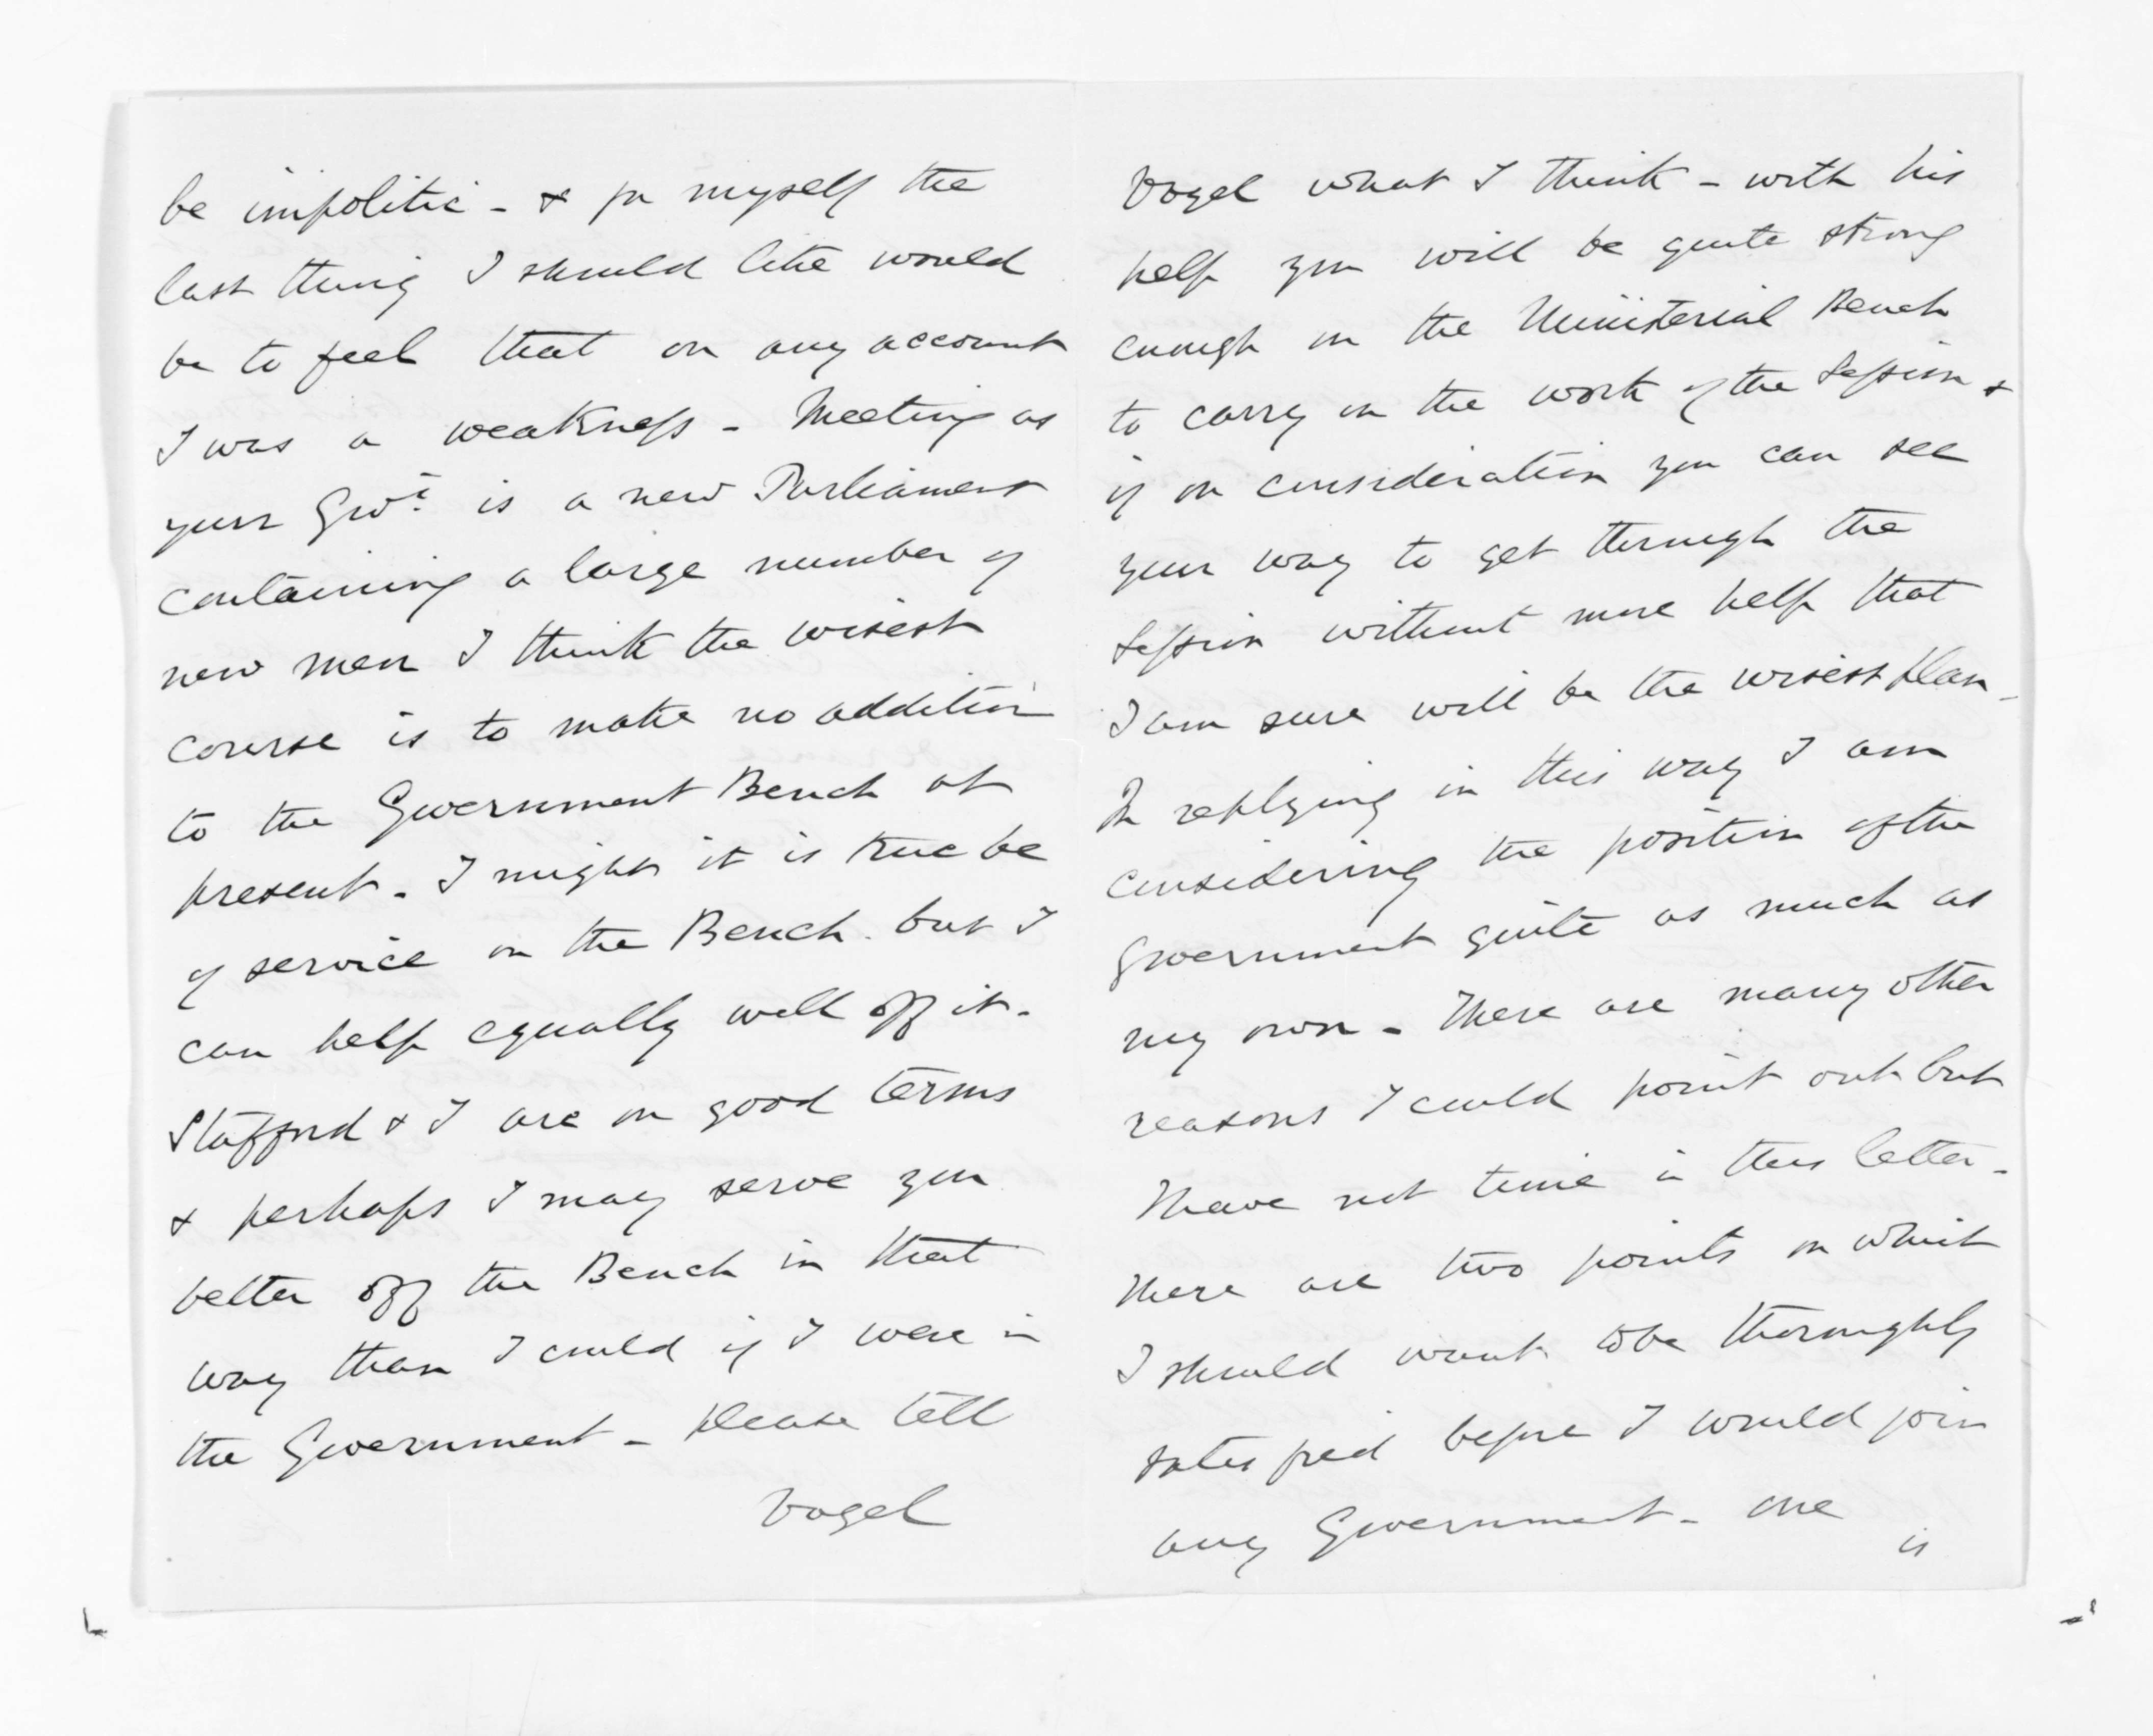 be impolitic - & for myself the
last thing I should like would
be to feel that on any account
I was a weakness - Meeting as
your Govt is a new Parliament
containing a large number of
new men I think the wisest
course is to make no addition
to the Government Bench at
present - I might it is true be
of service on the Bench. but I
can help equally well off it -
Stafford & I are on good terms
& perhaps I may serve you
better off the Bench in that
way than I could if I were in
the Government - Please tell
Vogel
Vogel what I think - with his
help you will be quite strong
enough on the Ministerial Bench
to carry on the work of the Session &
if on consideration you can see
your way to get through the
Session without more help that
I am sure will be the wisest plan -
In replying in this way I am
considering the position of the
Government quite as much as
my own - There are many other
reasons I could point out but
have not time in this letter -
There are two points on which
I should want to be thoroughly
satisfied before I would join
any Government - One
is